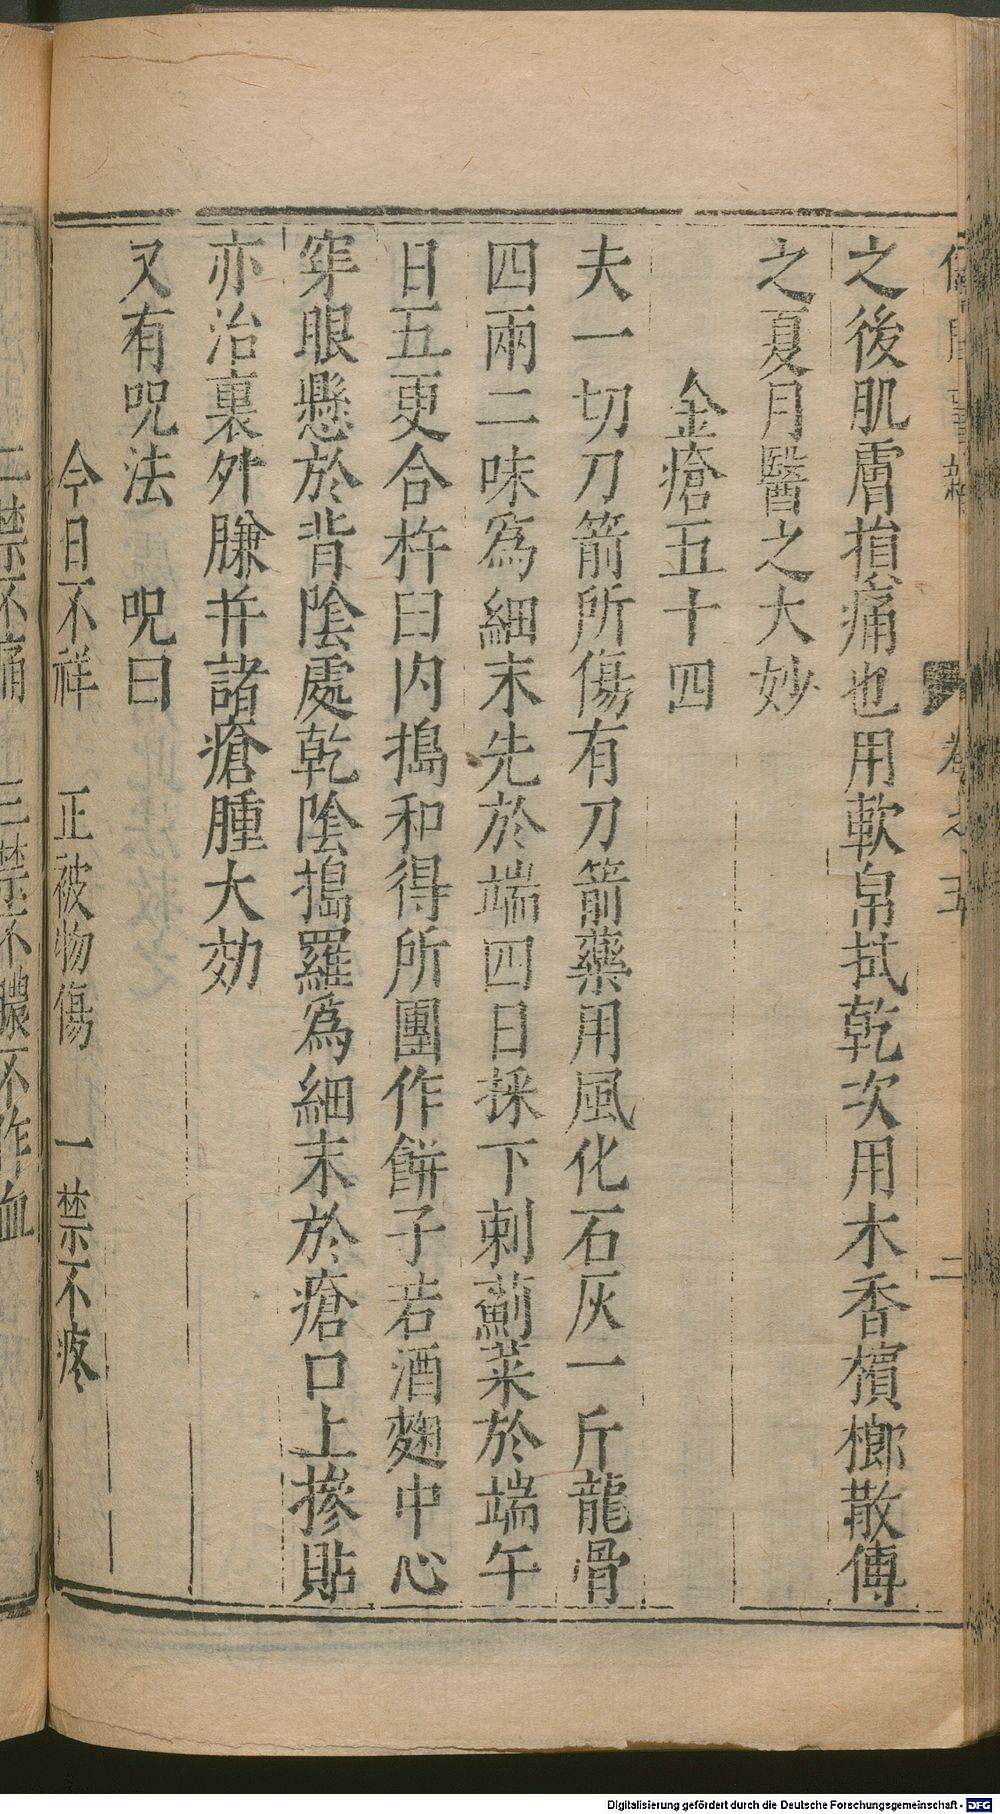 之後肌膚損痛也用軟帛拭乾次用木香檳榔散傅
之夏月醫之大妙
金瘡五十四
夫一切刀箭所傷有刀箭藥用風化石灰一斤龍骨
四兩二味為細末先於端四日採下刺薊菜於端午
日五更合杵臼內搗和得所團作餅子若酒麴中心
穿眼懸於背陰處乾陰搗羅為細末於瘡口上摻貼
亦治裏外臁并諸瘡腫大効
又有呪法 呪曰
今日不祥 正被物傷 一禁不疼
二禁不痛 三禁不膿不作血
Digitalisierung gefördert durch die Deutsche Forschungsgemeinschaft - DFG